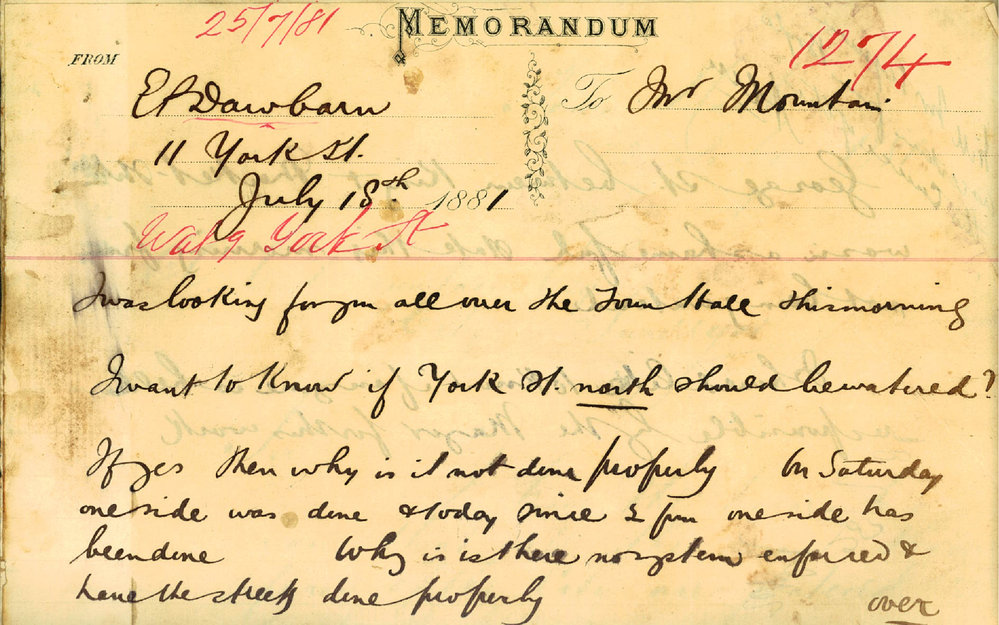 25/7/81
MEMORANDUM
1274
FROM
E P Dawbarn
To Mr Mountain
11 York St.
July 18th. 1881
York St
I was looking for you all over the Town Hall this morning
I want to know if York St. north should be watered?
If yes then why is it not done properly On Saturday
one side was done & today since 2 pm one side has
been done Why is is there no system enforced &
have the streets done properly
over